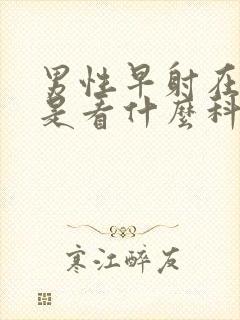 男性早射在
是看什麼科
寒江醉友